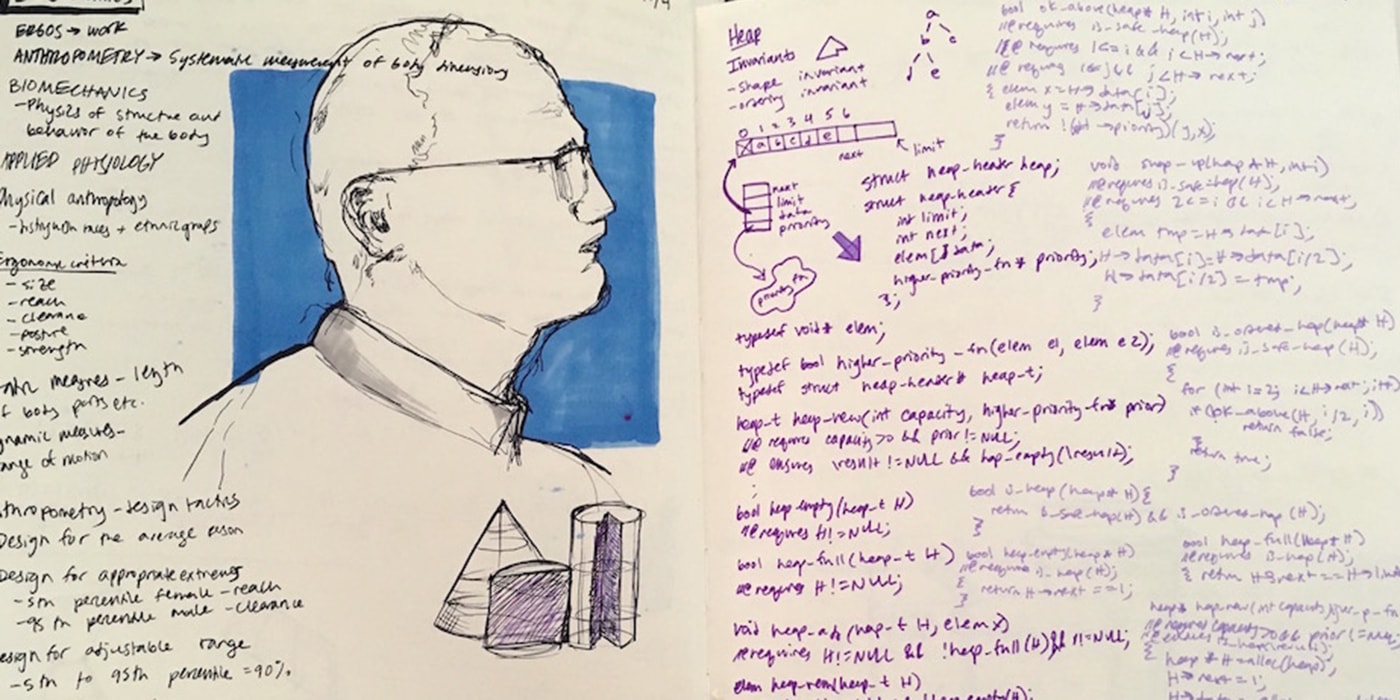 ERGOS → work
ANTHROPOMETRY → Systematic measurement of body dimensions
BIOMECHANICS
- Physics of structure and
behavior of the body
APPLIED PHYSIOLOGY
Physical anthropology
+ ethnic groups
Ergonomic criteria
- size
- reach
- clearance
- posture
- strength
measures - length
of body parts etc.
dynamic measures -
range of motion
anthropometry - design tactics
Design for the average
Design for appropriate extremes
- 5th percentile female - reach
- 95th percentile male - clearance
design for adjustable range
- 5th to 95th percentile = 90%
Heap
Invariants
- shape invariant
- ordering invariant
a
b c
d e
0 1 2 3 4 5 6
a b c d e
next
limit
next
limit
data
priority
priority fn
struct heap-header heap;
struct heap-header {
int limit;
int next;
elem[] data;
higher-priority-fn* priority;
};
typedef void* elem;
typedef bool higher-priority-fn(elem e1, elem e2);
typedef struct heap-header* heap-t;
heap-t heap-new(int capacity, higher-priority-fn* prior)
//@ requires capacity > 0 && prior != NULL;
//@ ensures \result != NULL && heap_empty(\result);
bool heap-empty(heap-t H)
//@ requires H != NULL;
bool heap-full(heap-t H)
//@ requires H != NULL;
void heap-add(heap-t H, elem x)
//@ requires H != NULL && !heap-full(H)
elem heap-rem(heap-t H)
bool ok_above(heap* H, int i, int j)
//@ requires is-safe-heap(H);
//@ requires 1 <= i && i < H→next;
//@ requires 1 <= j && j < H→next;
{ elem x = H→data[i];
elem y = H→data[j];
return !(*H→priority)(y,x);
}
void swap-up(heap* H, int i)
//@ requires is-safe-heap(H);
//@ requires 2 <= i && i < H→next;
{
elem tmp = H→data[i];
H→data[i] = H→data[i/2];
H→data[i/2] = tmp;
}
bool is-ordered-heap(heap* H)
//@ requires is-safe-heap(H);
{
for (int i=2; i<H→next; i++)
if (!ok_above(H, i/2, i))
return false;
return true;
}
bool is-heap(heap* H) {
return is-safe-heap(H) && is-ordered-heap(H);
}
bool heap-empty(heap* H)
//@ requires is-heap(H);
{
return H→next == 1;
}
bool heap-full(heap* H)
//@ requires is-heap(H);
{ return H→next == H→limit
heap* heap-new(int capacity,
//@ requires capacity > 0 && prior != NULL;
{
heap* H = alloc(heap);
H→next = 1;